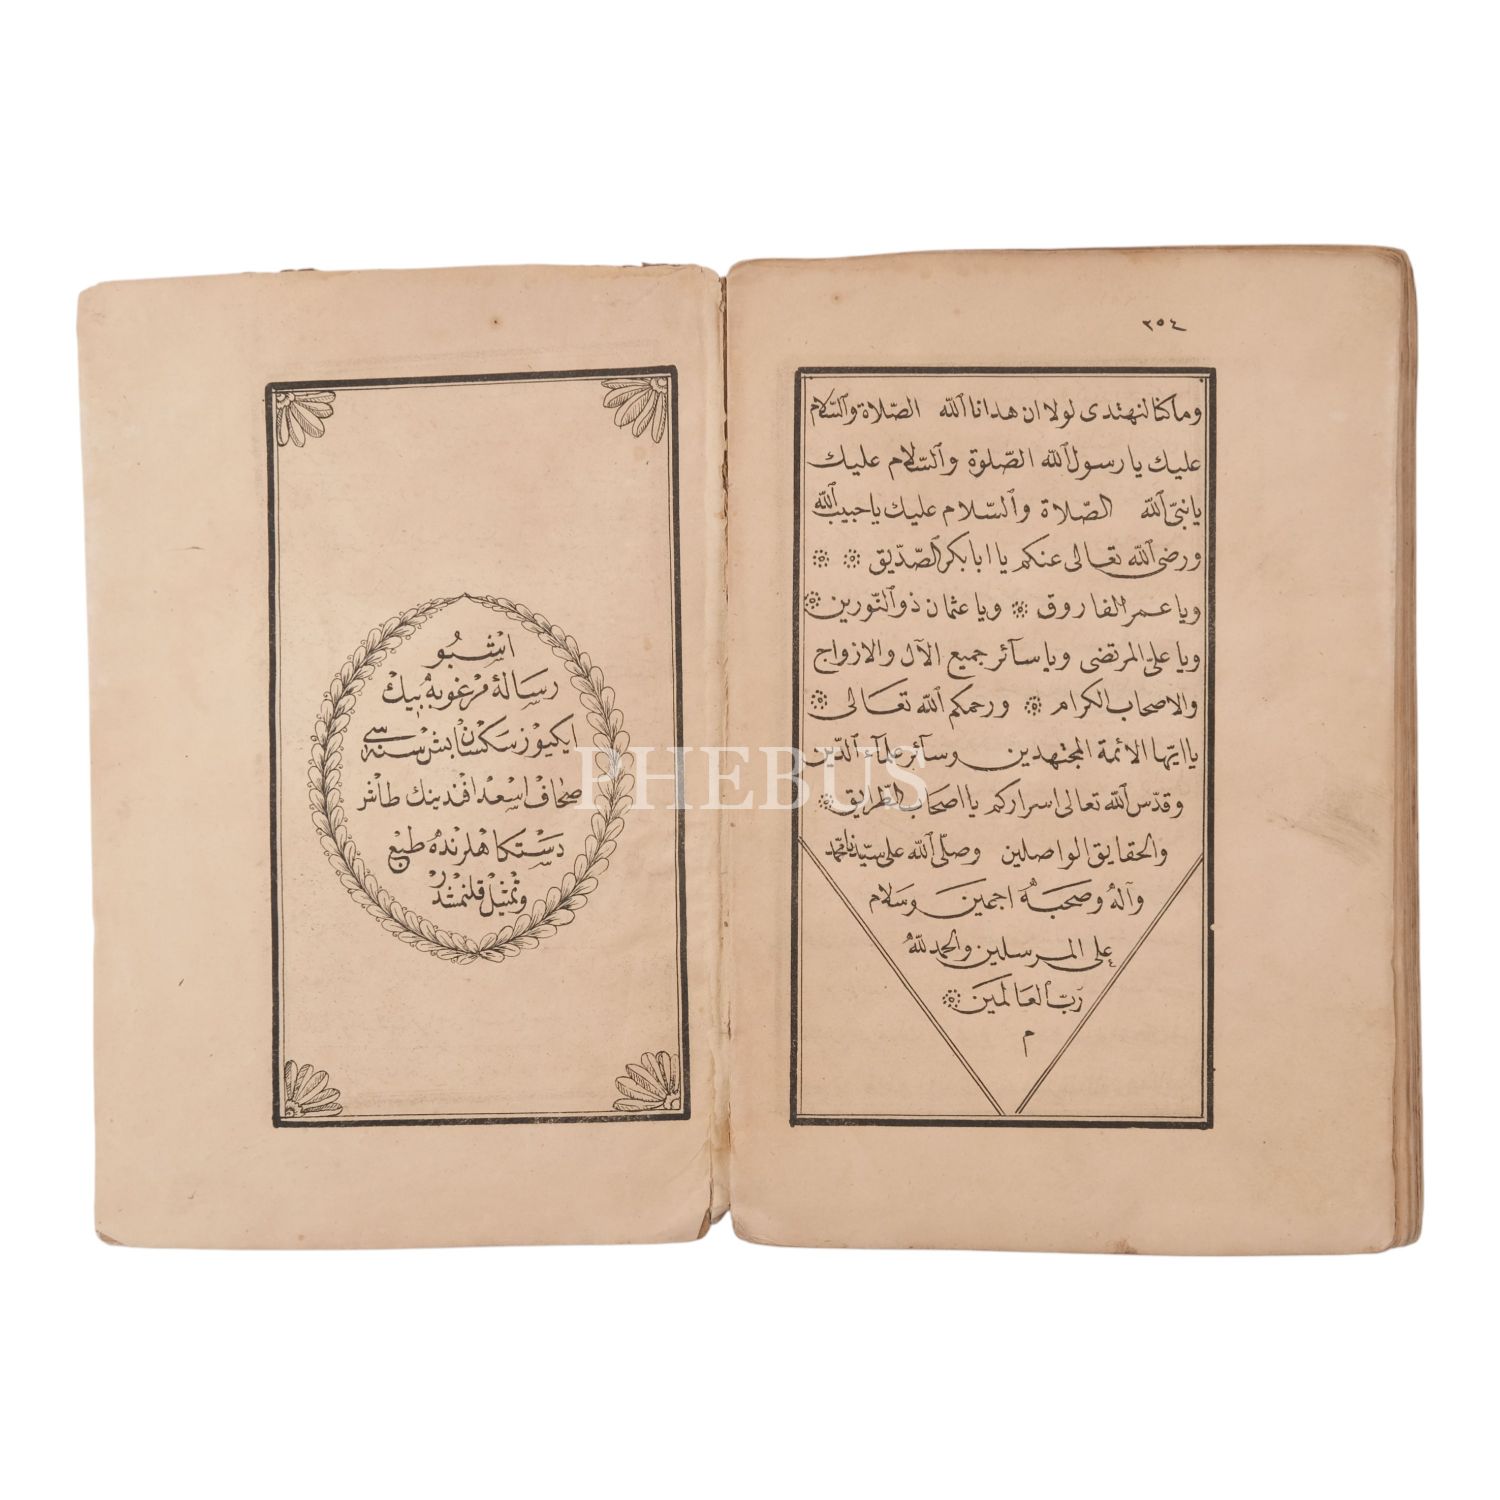 ٢٥٤
وما كنا لنهتدى لولا ان هدانا الله الصّلاة والسّلام
عليك يا رسول الله الصّلوة والسّلام عليك
يا نبىّ الله الصّلاة والسّلام عليك يا حبيب الله
ورضى الله تعالى عنكم يا ابا بكر الصّدّيق
ويا عمر الفاروق ويا عثمان ذو النّورين
ويا علىّ المرتضى ويا سآئر جميع الآل والازواج
والاصحاب الكرام ورحمكم الله تعالى
يا ايّها الائمة المجتهدين وسآئر علمآء الدّين
وقدّس الله تعالى اسراركم يا اصحاب الطّرايق
والحقايق الواصلين وصلّى الله على سيّدنا محمّد
وآله وصحبه اجمين وسلام
على المرسلين والحمد لله
ربّ العالمين
م
اشبو
رسالۀ مرغوبه بيك
ايكيوز سكسان بش سنه سى
صحاف اسعد افندينك طاش
دستكاهلرنده طبع
وتمثيل قلنمشدر
PHEBUS